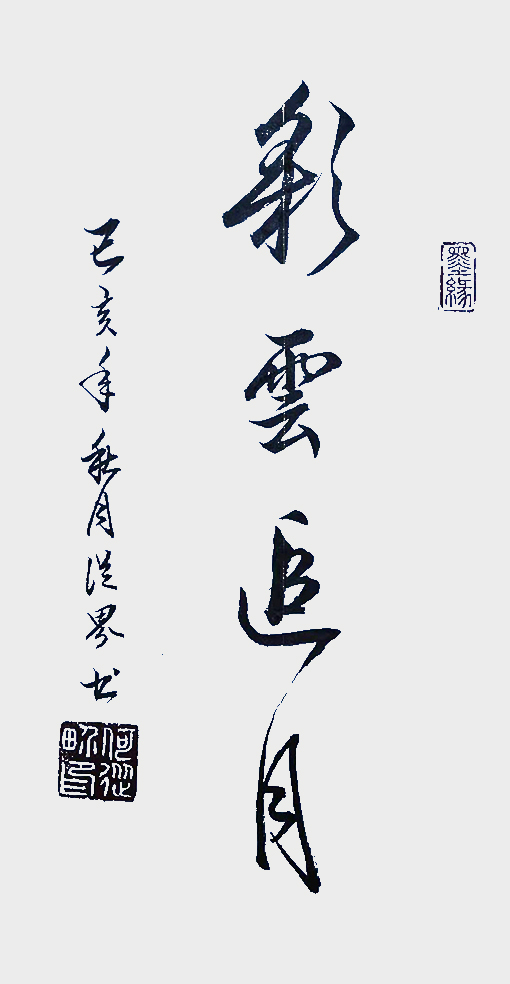 墨緣
彩雲追月
己亥年秋月從界书
何從界印